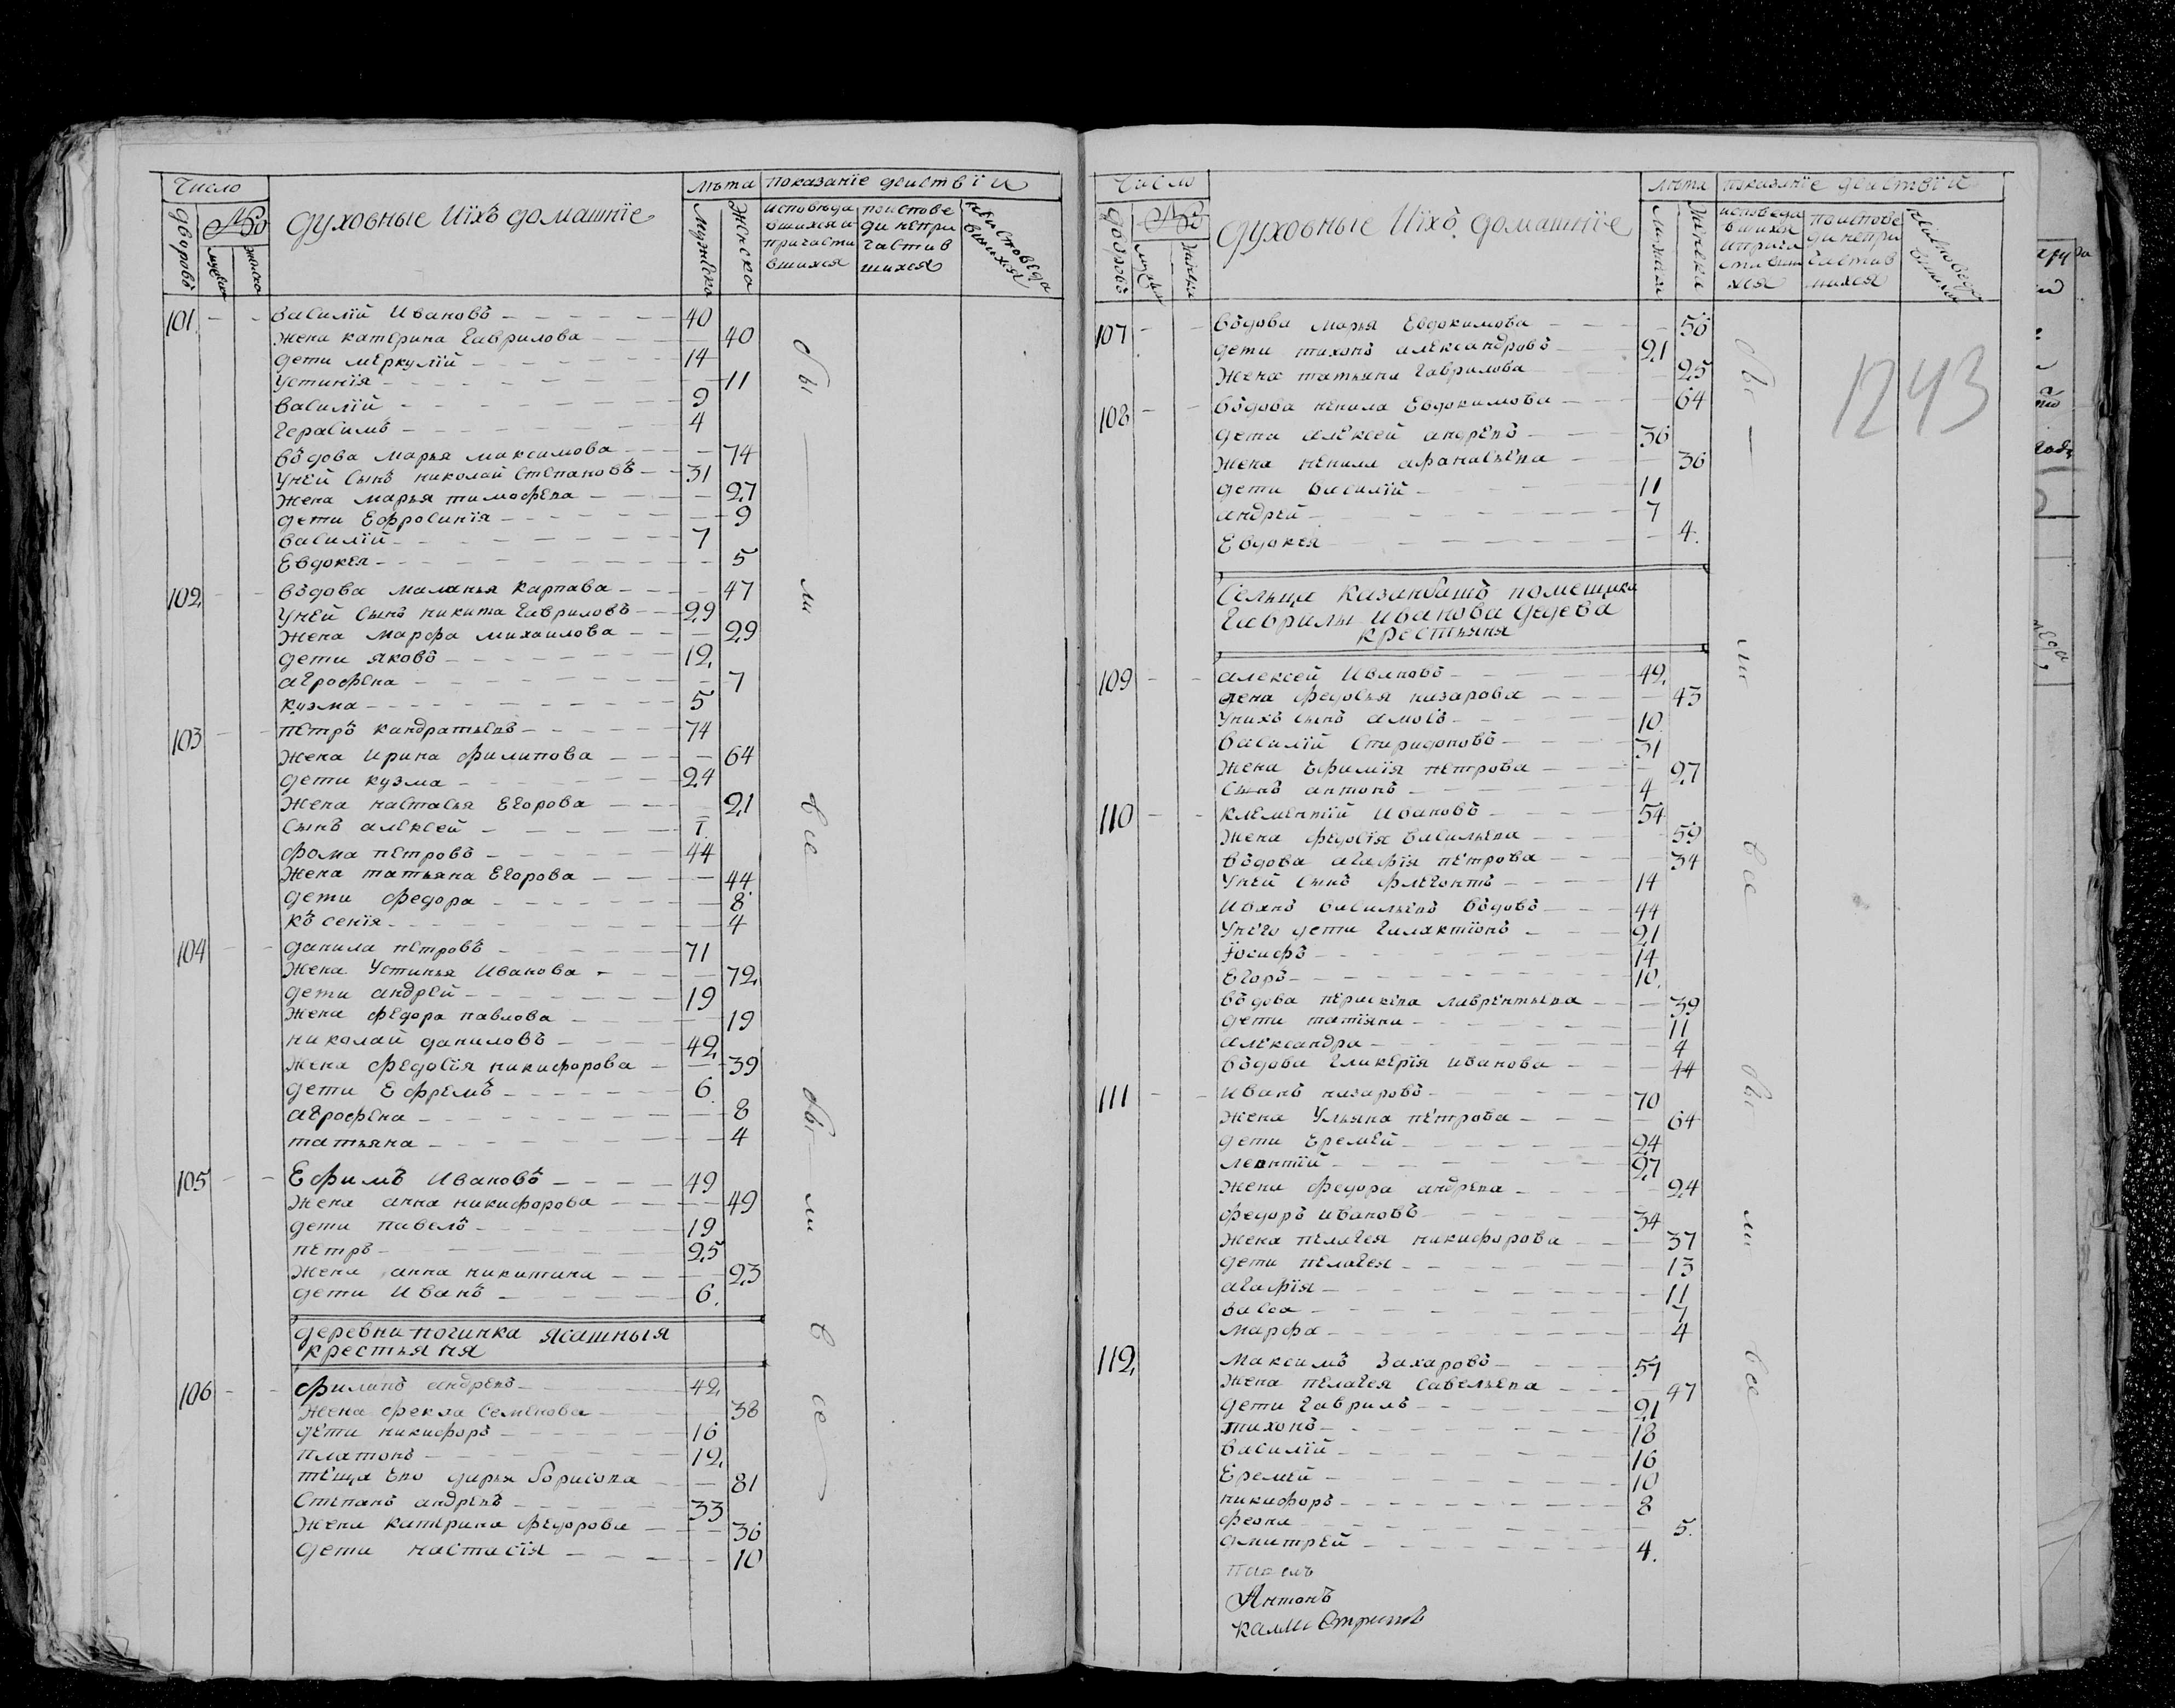 Число
духовные Иihъ домашнїе
лѣта показанїе действїи
дворовъ
№
мужска
женска
мужеска
женска
исповѣда вшихся и причасти вшихся
поиспове ди непри частив шихся
неисповеда вшихся
101 василїй Ивановъ 40
жена катерина Гаврилова 40
дети меркулїй 14
Устинїя 11
василїй 9
Герасимъ 4
въдова марья максимова 74
Унѣй сынъ николай степановъ 31
жена марья тимофѣва 27
дети Ефросинїя 9
василїй 7
Евдокея 5
102 въдова маланья карпава 47
Уней сынъ никита Гавриловъ 29
жена марфа михаилова 29
дети яковъ 12
агрофена 7
кузма 5
103 петръ кандратьевъ 74
жена ирина филипова 64
дети кузма 24
жена настасья Егорова 21
сынъ алексей 1
фома петровъ 44
жена татьяна Егорова 44
дети федора 8
къ сенїя 4
104 данила петровъ 71
жена Устинья Иванова 72
дети андрей 19
жена федора павлова 19
николай даниловъ 42
жена федосїя никифорова 39
дети Ефремъ 6
агрофена 8
татьяна 4
105 Ефимъ Ивановъ 49
жена анна никифорова 49
дети павелъ 19
петръ 25
жена анна никитина 23
дети Иванъ 6
деревни починка ясашныя
крестьяня
106 филипъ андревъ 42
жена фекла семенова 38
дети никифоръ 16
платонъ 12
теща Ево дарья борисова 81
степанъ андревъ 33
жена катерина федорова 36
дети настасїя 10
бы ли все бы ли все
Число
духовные Иихъ домашнїе
лѣта показанїе действїи
дворовъ
№
мужска
женска
мужеска
женска
исповеда вшихся и прича стивши хся
поиспове ди непри частив шихся
неисповеда вшихся
1243
107 въдова марья Евдокимова 56
дети тихонъ александровъ 21
жена татьяна Гаврилова 25
108 въдова ненила Евдокимова 64
дети алексей андревъ 36
жена ненила афанасьева 36
дети василїй 11
андрей 7
Евдокея 4
Сельца казанбашъ помещика
Гаврилы Иванова дедева
крестьяня
109 алексей Ивановъ 49
жена федосья назарова 43
Унихъ сынъ амосъ 10
василїй спиридоновъ 31
жена Ефимїя петрова 27
сынъ антонъ 4
110 клементїй Ивановъ 54
жена федосїя васильева 59
въдова агафїя петрова 34
Уней сынъ флегонтъ 14
Иванъ васильевъ въдовъ 44
Унего дети Галактїонъ 21
Їосифъ 14
Егоръ 10
въдова пераскева лаврентьева 39
дети татїяна 11
александра 4
въдова Гликерїя иванова 44
111 Иванъ назаровъ 70
жена Ульяна петрова 64
дети Еремей 24
леонтїй 27
жена федора андрева 24
федоръ ивановъ 34
жена пелагея никифорова 37
дети пелагея 13
агафїя 11
васса 7
марфа 4
112 максимъ Захаровъ 57
жена пелагея савельева 47
дети Гаврилъ 21
тихонъ 18
василїй 16
Еремей 10
никифоръ 8
феона 5
дмитрей 4
Антонъ
бы ли все бы ли все